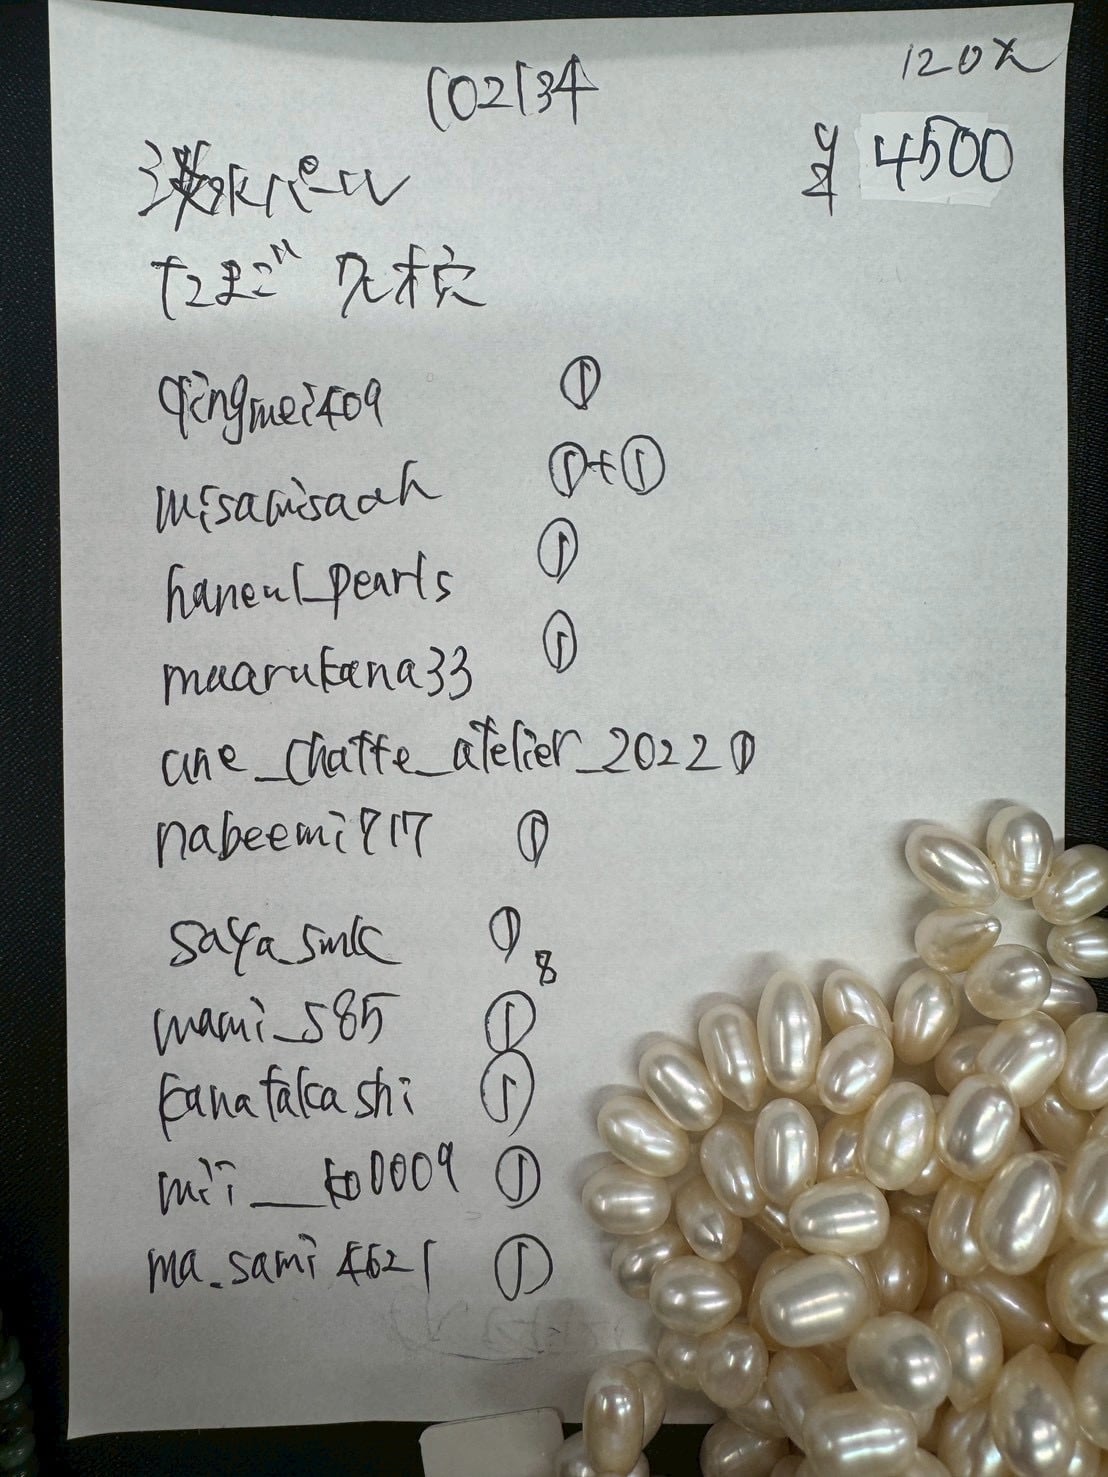 102134
120入
¥4500
淡水パール
たまご 無核
qingmei409 ①
misamisaah ①+①
haneul_pearls ①
maarukana33 ①
une_chatte_atelier_2022 ①
nabeemi717 ①
saya_smk ①
8
mami_s85 ①
kanatakashi ①
mii__ko0009 ①
ma.sami4621 ①